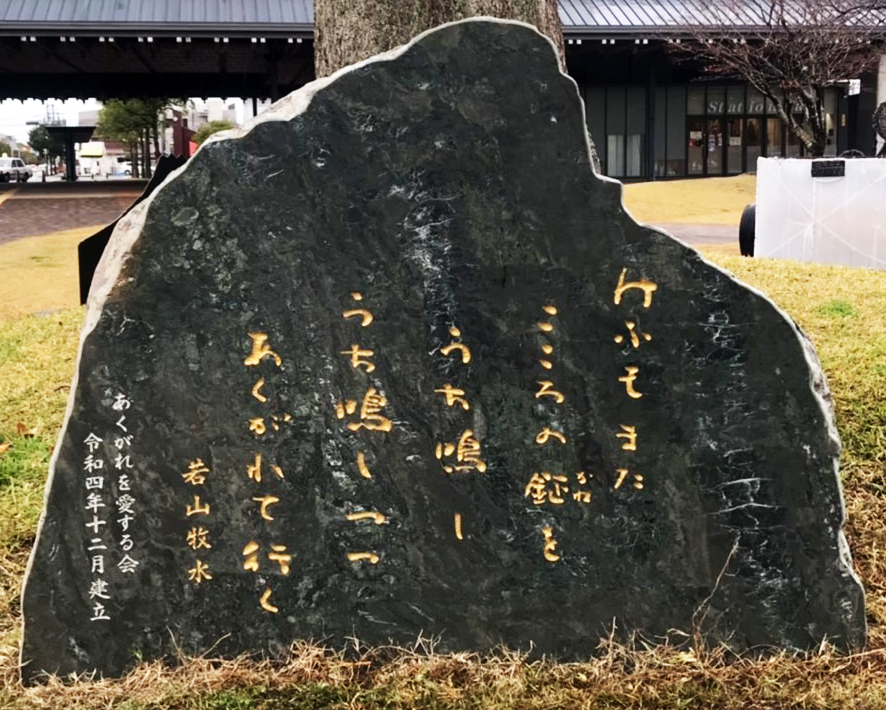 けふもまた
こころの鉦を
かね
うち鳴し
うち鳴しつつ
あくがれて行く
若山牧水
あくがれを愛する会
令和四年十二月建立
Station